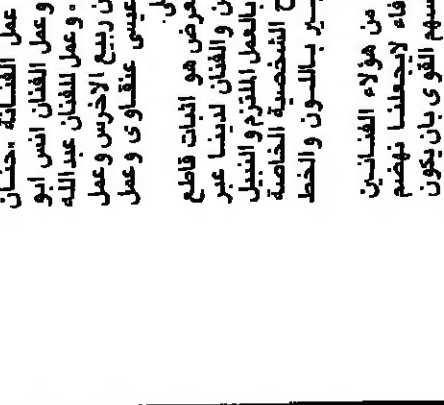 عمل الفنانة «حنان
وعمل الفنان انس ابو
. وعمل للفنان عبدالله
ن ربيع الاخرس وعمل
عيسى عنقاوي وعمل
عرض هو اثبات قاطع
ن والفنان لدينا عبر
بالعمل الملتزم والنبيل
ح الشخصية الخاصة
ـير باللون والخط
من هؤلاء الفنانين
فاء لايجعلنا نهضم
سهم القوي بان يكون